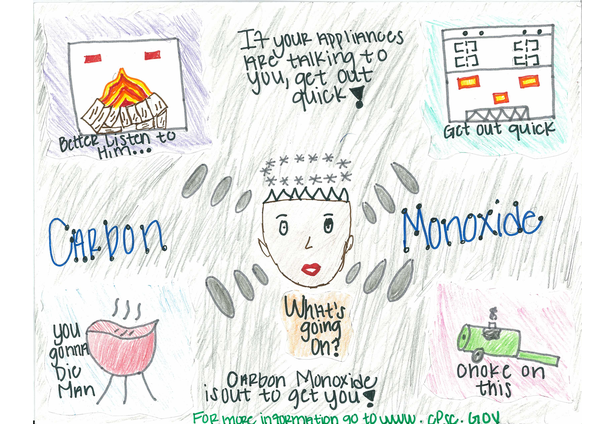 If your appliances
are talking to
you, get out
quick!
Better Listen to
Him...
Get out quick
Carbon
Monoxide
What's
going
on?
you
gonna
Die
Man
Choke on
this
Carbon Monoxide
is out to get you!
For more information go to www.cpsc.gov